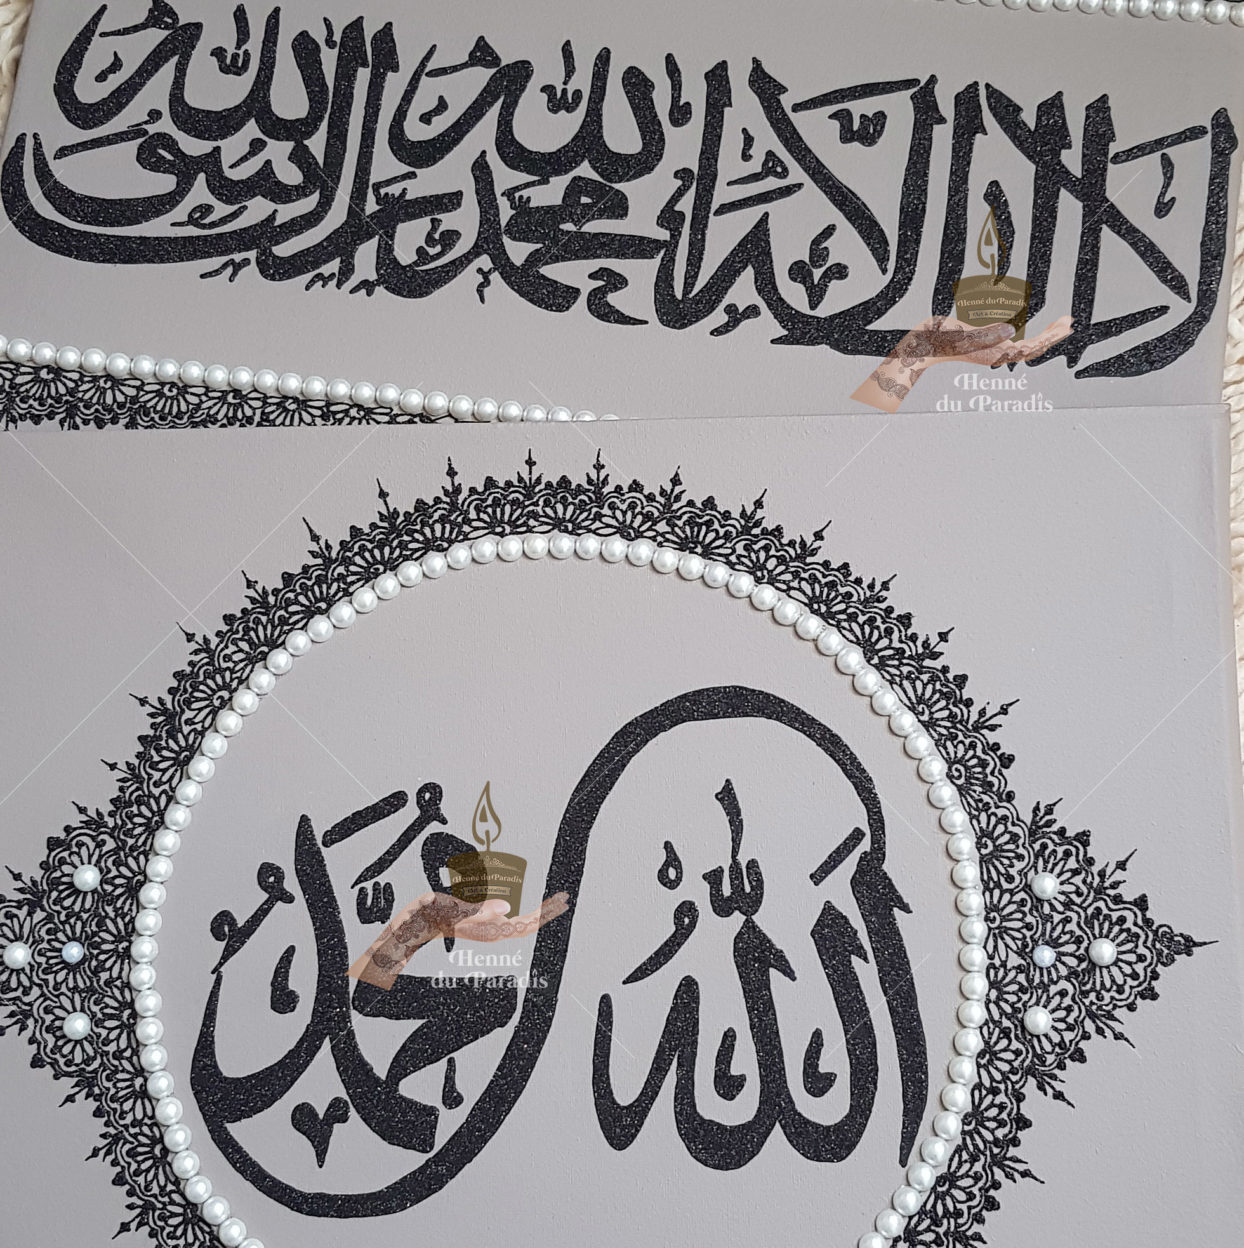 لا إله إلا الله محمد رسول الله
Henné du Paradis
Art & Création
Henné
du Paradis
الله
محمد
Henné du Paradis
Art & Création
Henné
du Paradis